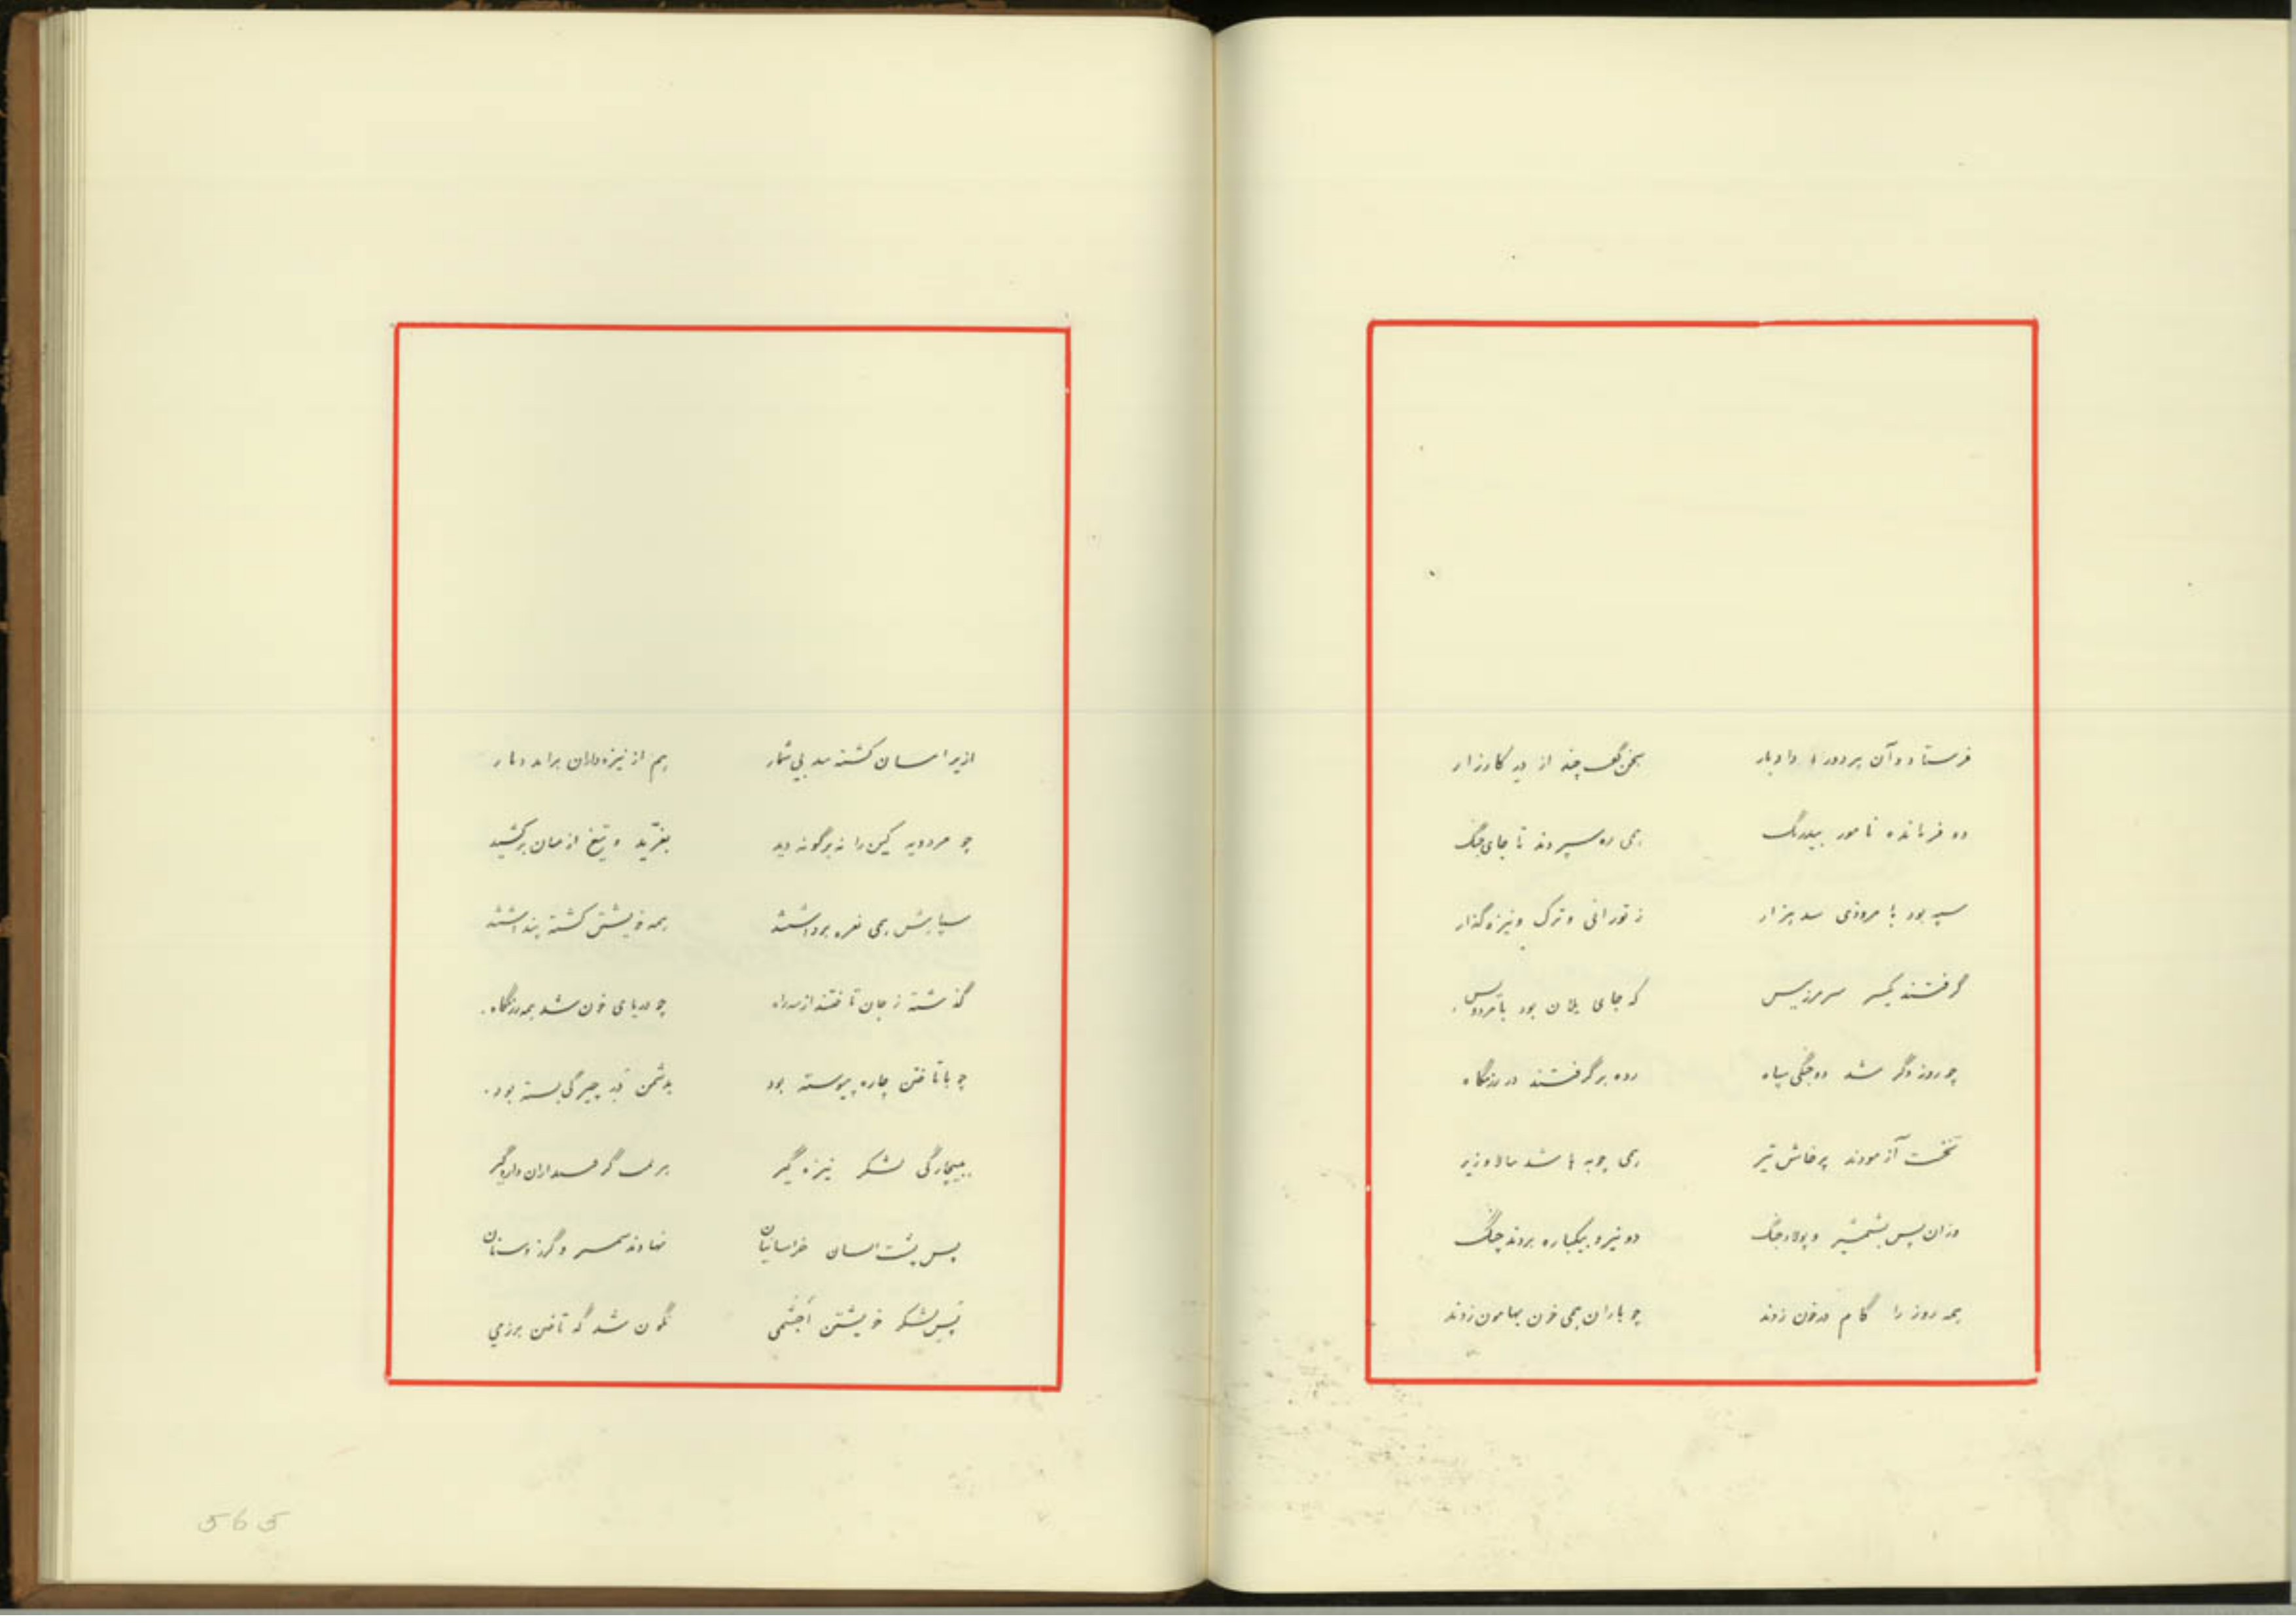 فرستاد و آن هر دو را داد بار سخن گفت چند از در کارزار
دو فرمانده نامور بیدرنگ همی ره سپردند تا جای جنگ
سپه بود با مروزی سد هزار ز تورانی و ترک و نیزه گذار
گرفتند یکسر سر مرز پس که جای یلان بود
چو روز دگر شد دو جنگی سپاه رده بر گرفتند در رزمگاه
نخست آزمودند پرخاش تیر همی چوبه ها شد
وزان پس بشمشیر و پولاد جنگ دو نیرو بیکباره بردند چنگ
همه روز را گام در خون زدند چو باران همی خون بهامون زدند
کشته شد بی شمار هم از نیزه داران برآمد دمار
چو مردویه کین را نه بر گونه دید بغرّید و تیغ از میان برکشید
سپاهش همی نعره برداشتند همه خویشتن کشته پنداشتند
گذشته ز جان تاختند از سه راه چو دریای خون شد همه رزمگاه
چو با تاختن چاره پیوسته بود بدشمن در چیرگی بسته بود
ببیچارگی لشکر نیزه گیر داروگیر
پس پشت خراسانیان نهادند و گرز و سنان
پس لشکر خویشتن نگون شد گه تاختن بر زمی
565